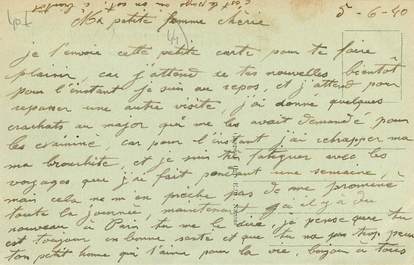 5-6-40
Ma petite femme chérie
je t'envoie cette petite carte pour te faire
plaisir, car j'attend de tes nouvelles bientôt
pour l'instant je suis au repos, et j'attend pour
repasser une autre visite, j'ai donné quelques
crachats au major qui me les avait demandé pour
les examiné, car pour l'instant j'ai rehapper ma
ma bronchite, et je suis très fatiguer avec les
voyages que j'ai fait pendant une semaine,
mais cela ne m'en pêche pas de me promené
toute la journée, maintenant qu'il y a du
nouveau à Paris tu me le dira, je pense que tu
est toujours en bonne santé et que tu n'a pas trop peur
ton petit homme qui t'aime pour la vie, bonjour à tous